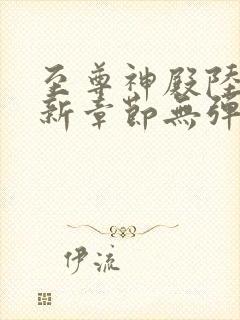 至尊神殿陸
新章節無彈
伊流